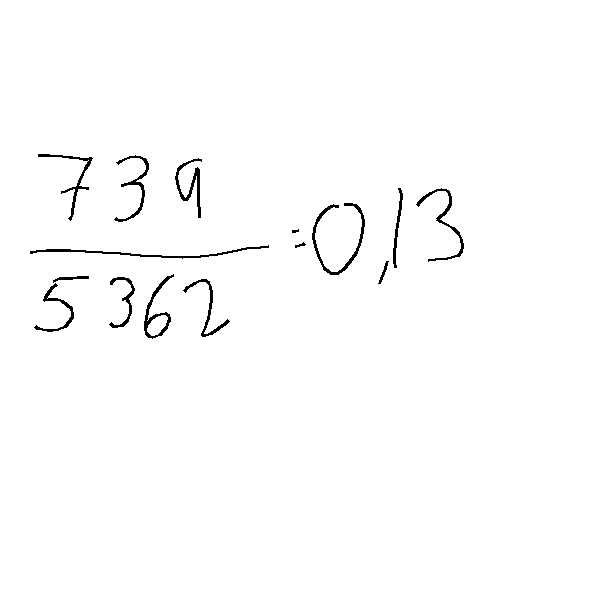 739
5362
=0,13